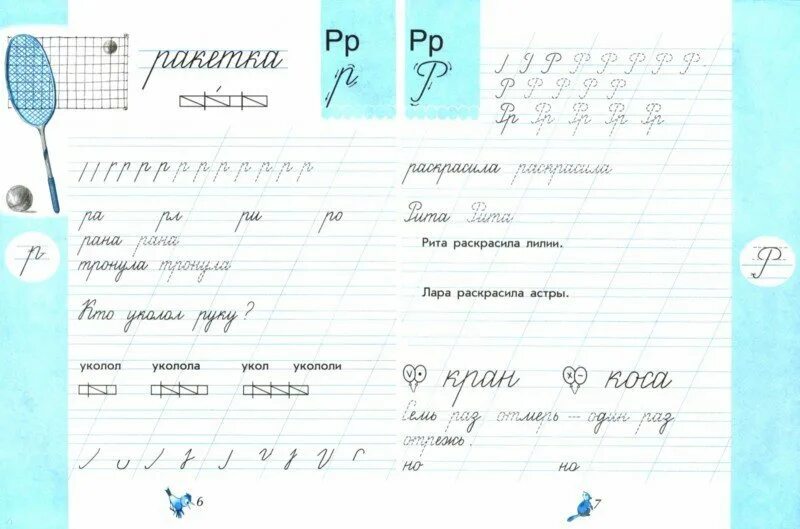 ракетка
Рр
р
р р р р р р р р р р р
ра рл ри ро
рана рана
тронула тронула
Кто уколол руку?
уколол уколола укол укололи
р
6
Рр
Р
Р Р Р Р Р Р Р
Р Р Р Р Р Р
Рр Рр Рр Рр Рр
раскрасила раскрасила
Рита Рита
Рита раскрасила лилии.
Лара раскрасила астры.
кран коса
Семь раз отмерь — один раз
отрежь.
но но
Р
7